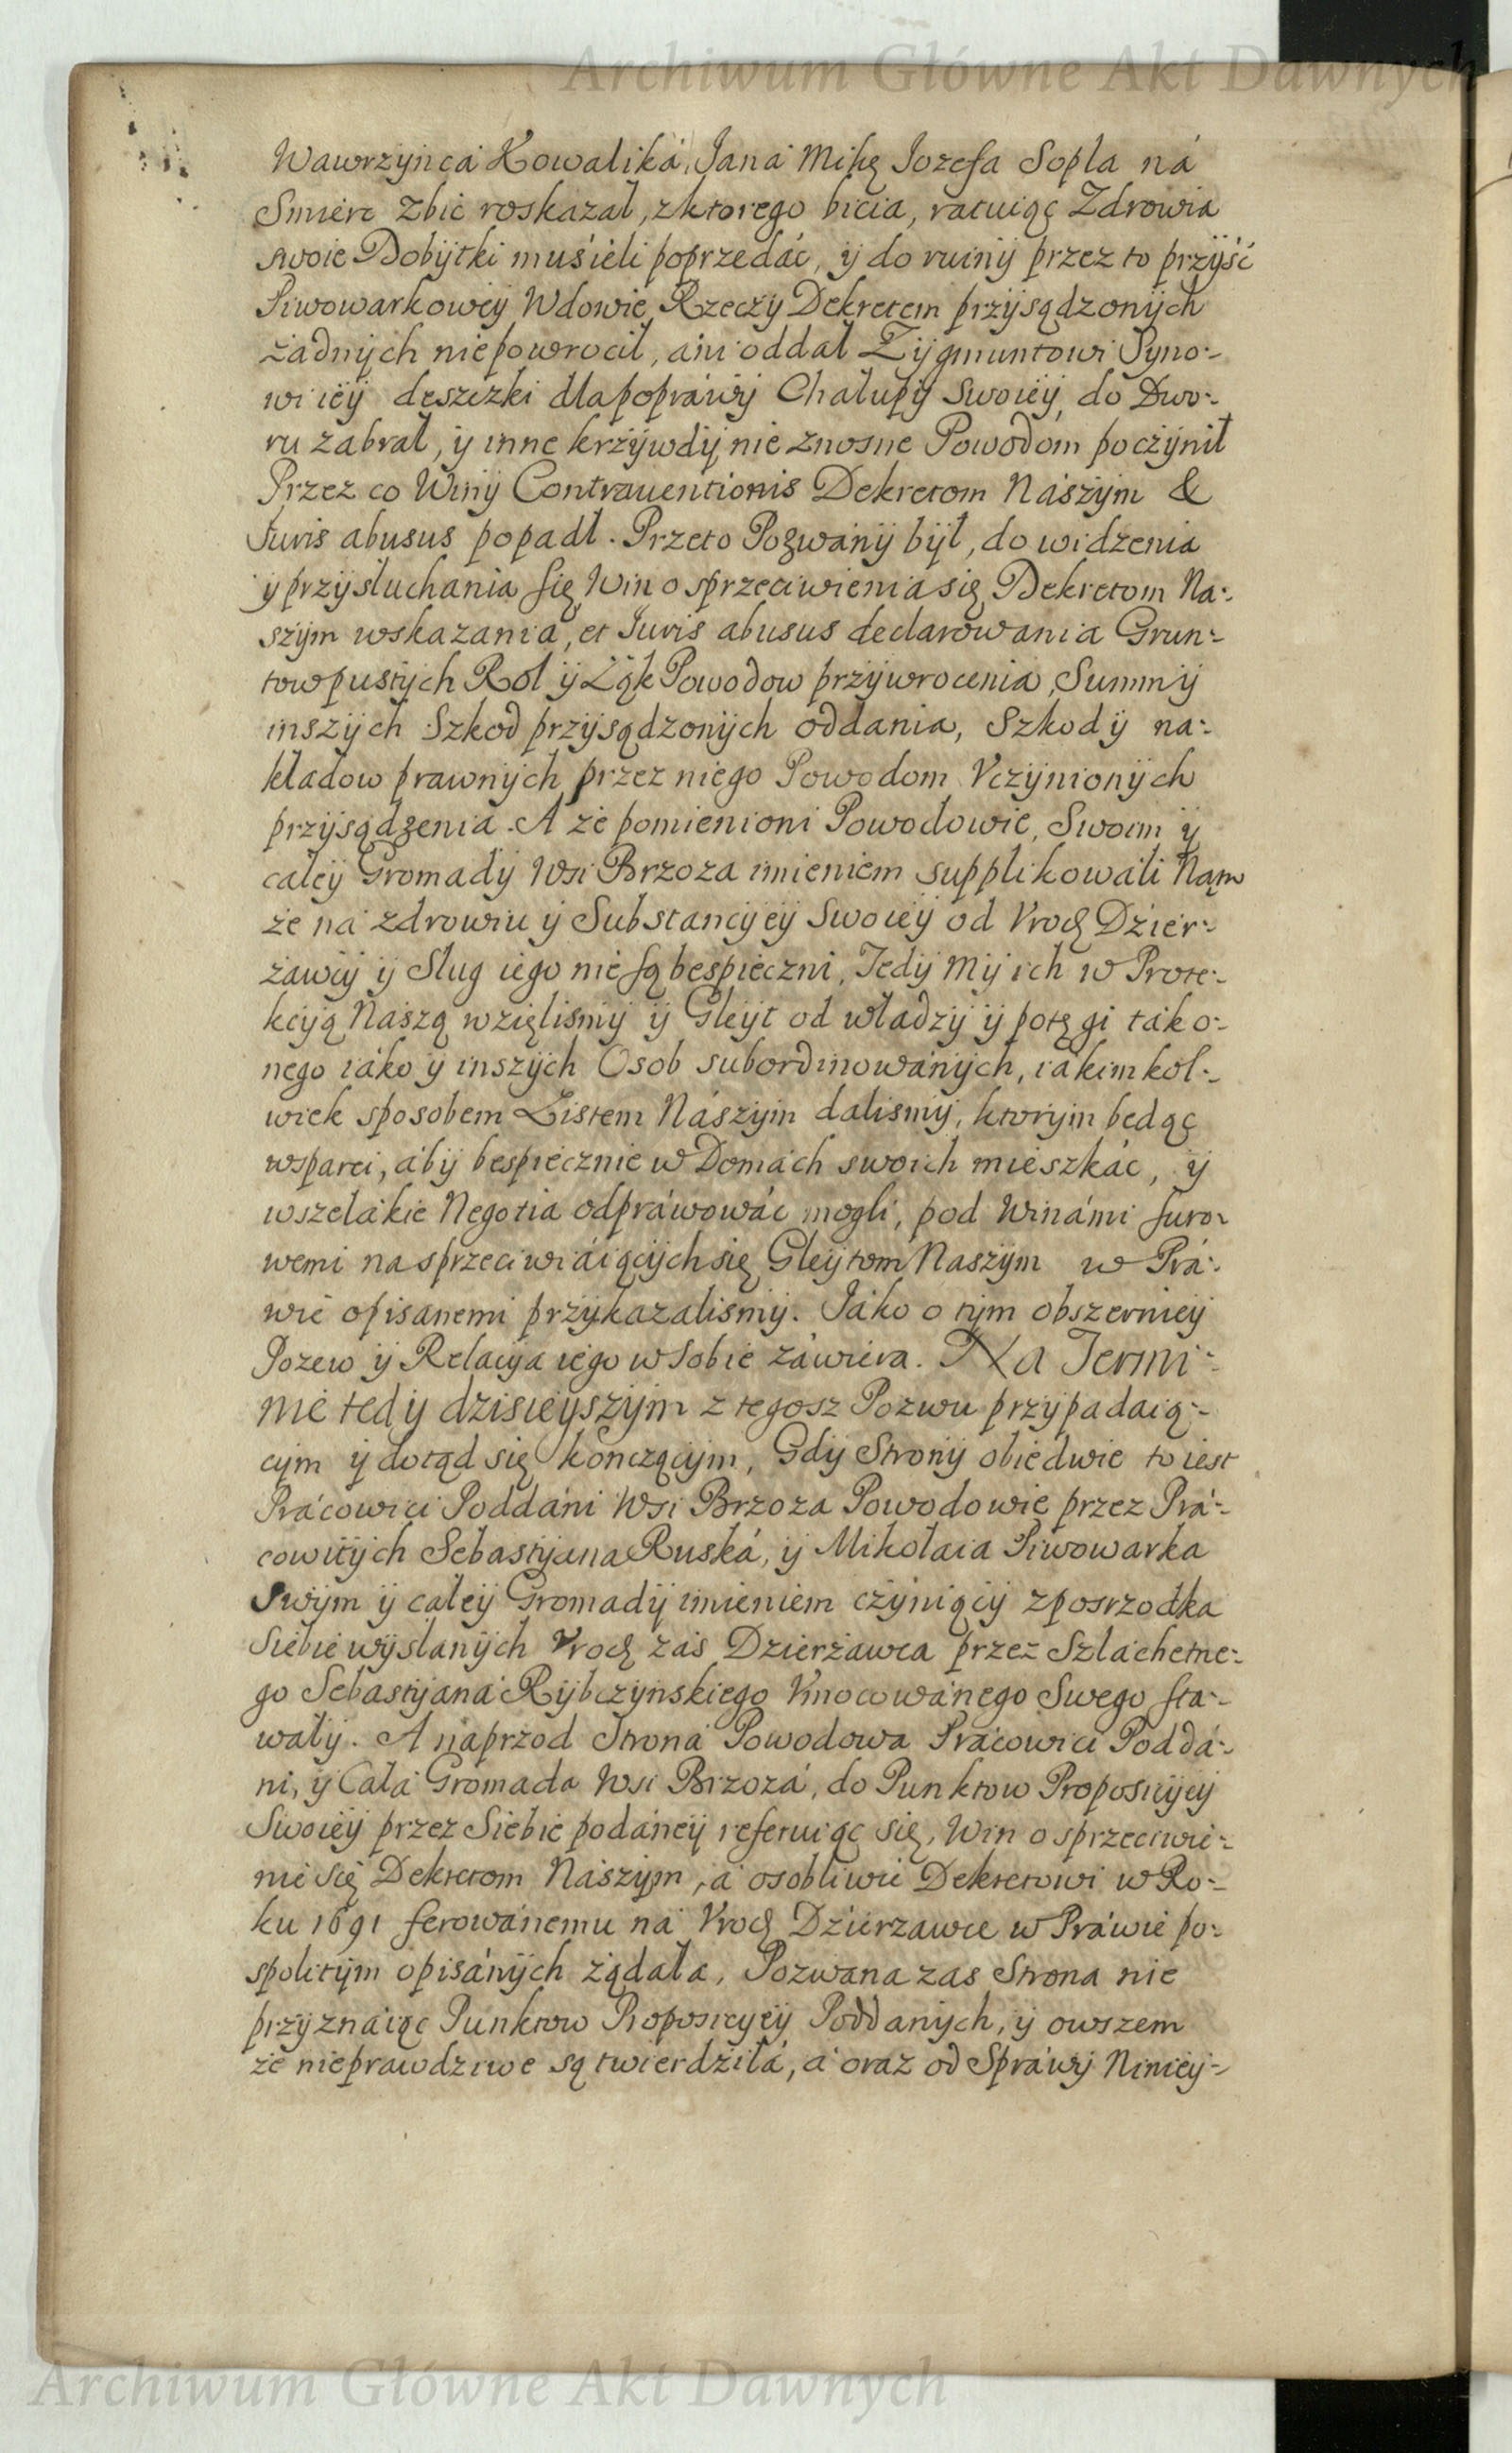 Archiwum Główne Akt Dawnych
Wawrzyńca Kowaliká, Janá Mikę Jozefa Sopla ná
Smierc zbić roskazał, z ktorego bicia, ratuiąc Zdrowia
swoie Dobytki muśieli poprzedáć, y do ruiny przez to przyść
Piwowarkowey Wdowie Rzeczy Dekretem przysądzonych
żadnych niepowrocił, ani oddał Zygmuntowi Syno-
wi iey deszczki dla popráwy Chałupy Swoiey, do Dwo-
ru zabrał, y inne krzywdy nie znosne Powodom poczynił
Przez co Winy Contraventionis Dekretom Nászym &
Juris abusus popadł. Przeto Pozwány był, do widzenia
y przysłuchania się, Win o sprzeciwienia się Dekretom Na-
szym wskazania, et Juris abusus declarowania Grun-
tow pustych Rol y Łąk Powodow przywrocenia, Summy
inszych Szkod przysądzonych oddania, Szkody na-
kładow prawnych przez niego Powodom Vczynionych
przysądzenia. A że pomienioni Powodowie, Swoim y
całey Gromady Wsi Brzoza imieniem supplikowáli Nąm
że ná zdrowiu y Substancyey Swoiey od Vrodz Dzier-
żawcy y Sług iego nie są bespieczni, Tedy My ich w Prote-
kcyą Naszą wzięlismy y Gleyt od władzy y potęgi ták o-
nego iáko y inszych Osob subordinowánych, iákimkol-
wiek sposobem Listem Nászym dalismy, ktorym będąc
wsparci, áby bespiecznie w Domách swoich mieszkáć, y
wszelákie Negotia odpráwowáć mogli, pod Winámi suro-
wemi na sprzeciwiáiących się Gleytom Naszym w Prá-
wie opisanemi przykazalismy. Jáko o tym obszerniey
Pozew y Relacya iego w sobie záwiera. Na Termi-
nie tedy dzisieyszym z tegosz Pozwu przypadaią-
cym y dotąd się kończącym, Gdy Strony obiedwie to iest
Prácowici Poddáni Wsi Brzoza Powodowie przez Prá-
cowitych Sebastyana Ruská, y Mikołaia Piwowarka
Swym y całey Gromady imieniem czyniący z posrzodka
Siebie wysłanych Vrodz zaś Dzierżawca przez Szláchetne-
go Sebastyaná Rybczynskiego Vmocowánego Swego sta-
wały. A náprzod Strona Powodowa Prácowici Poddá-
ni, y Cáłá Gromada Wsi Brzozá, do Punktow Proposicyey
Swoiey przez Siebie podáney referuiąc się, Win o sprzeciwie-
nie się Dekretom Nászym, á osobliwie Dekretowi w Ro-
ku 1691 ferowánemu ná Vrodz Dzierzawce w Práwie po-
spolitym opisánych żądała, Pozwana zas Strona nie
przyznaiąc Punktow Proposicyey Poddanych, y owszem
że nieprawdziwe są twierdziłá, á oraz od Spráwy Niniey-
Archiwum Główne Akt Dawnych